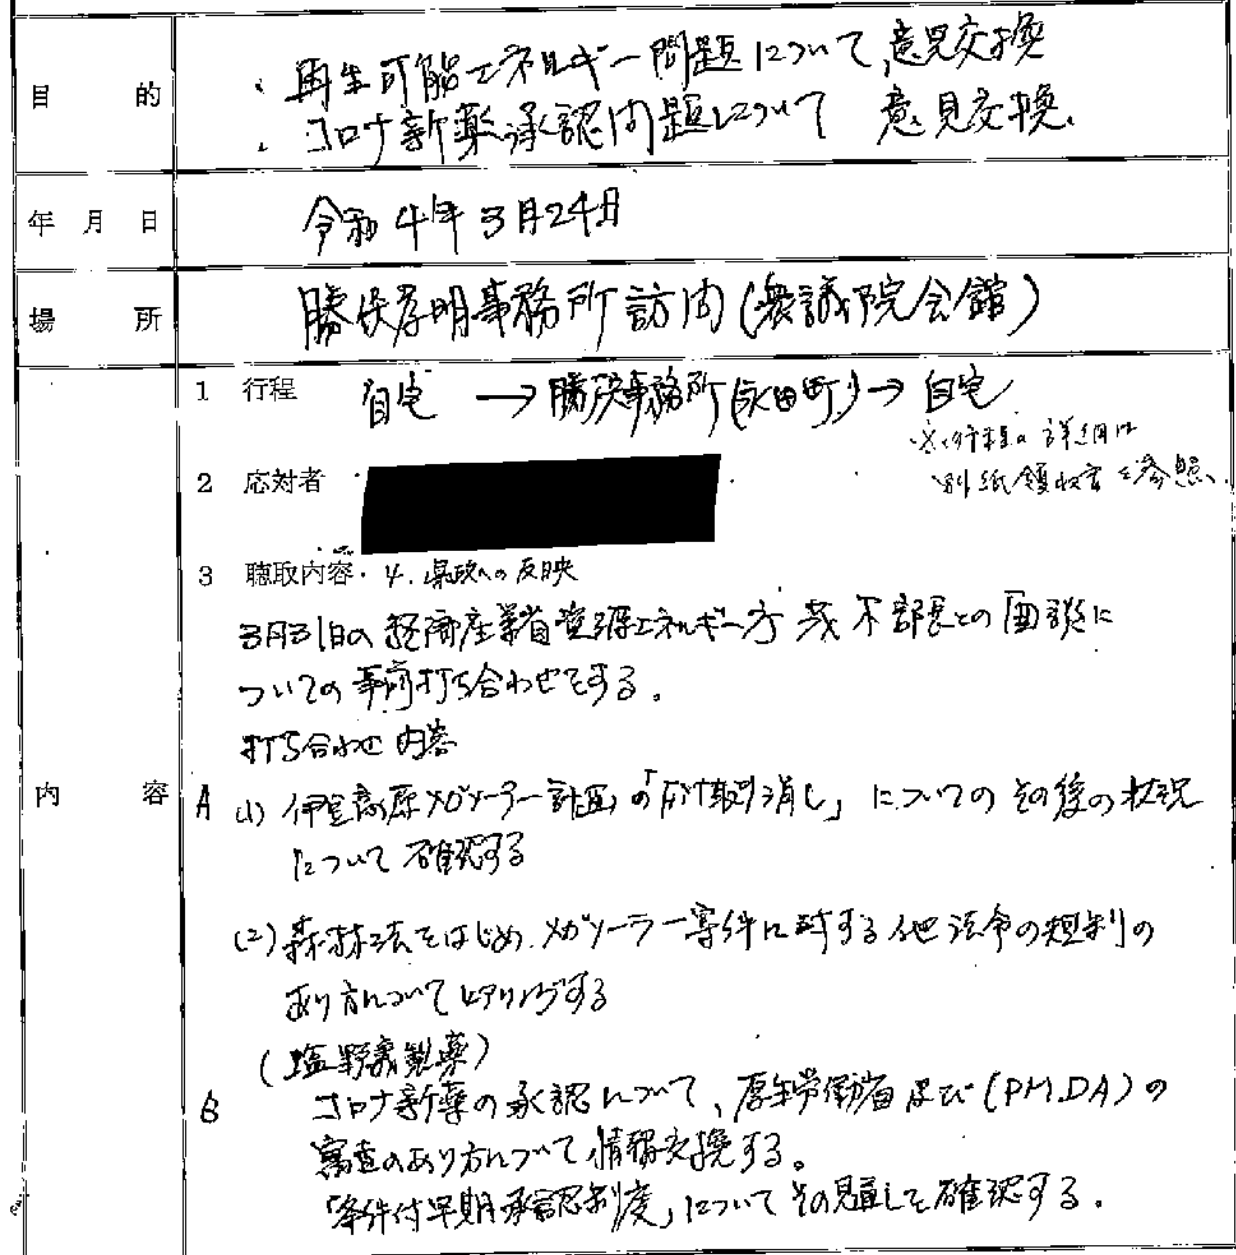 目的
・再生可能エネルギー問題について、意見交換
・コロナ新薬承認問題について 意見交換.
年月日
令和4年3月24日
場所
勝俣孝明事務所訪問(衆議院会館)
内容
1 行程 自宅 → 勝俣事務所(永田町) → 自宅
※行程の詳細は
別紙領収書を参照、
2 応対者
3 聴取内容・4.県政への反映
3月31日の経済産業省資源エネルギー庁 茂木部長との面談に
ついての事前打ち合わせをする。
打ち合わせ内容
A (1) 伊豆高原メガソーラー計画の「FIT取り消し」についてのその後の状況
について確認する
(2) 森林法をはじめ、メガソーラー案件に対する他法令の規制の
あり方についてヒアリングする
(塩野義製薬)
B コロナ新薬の承認について、厚生労働省及び(PMDA)の
審査のあり方について、情報交換する。
「条件付早期承認制度」についてその見直しを確認する.